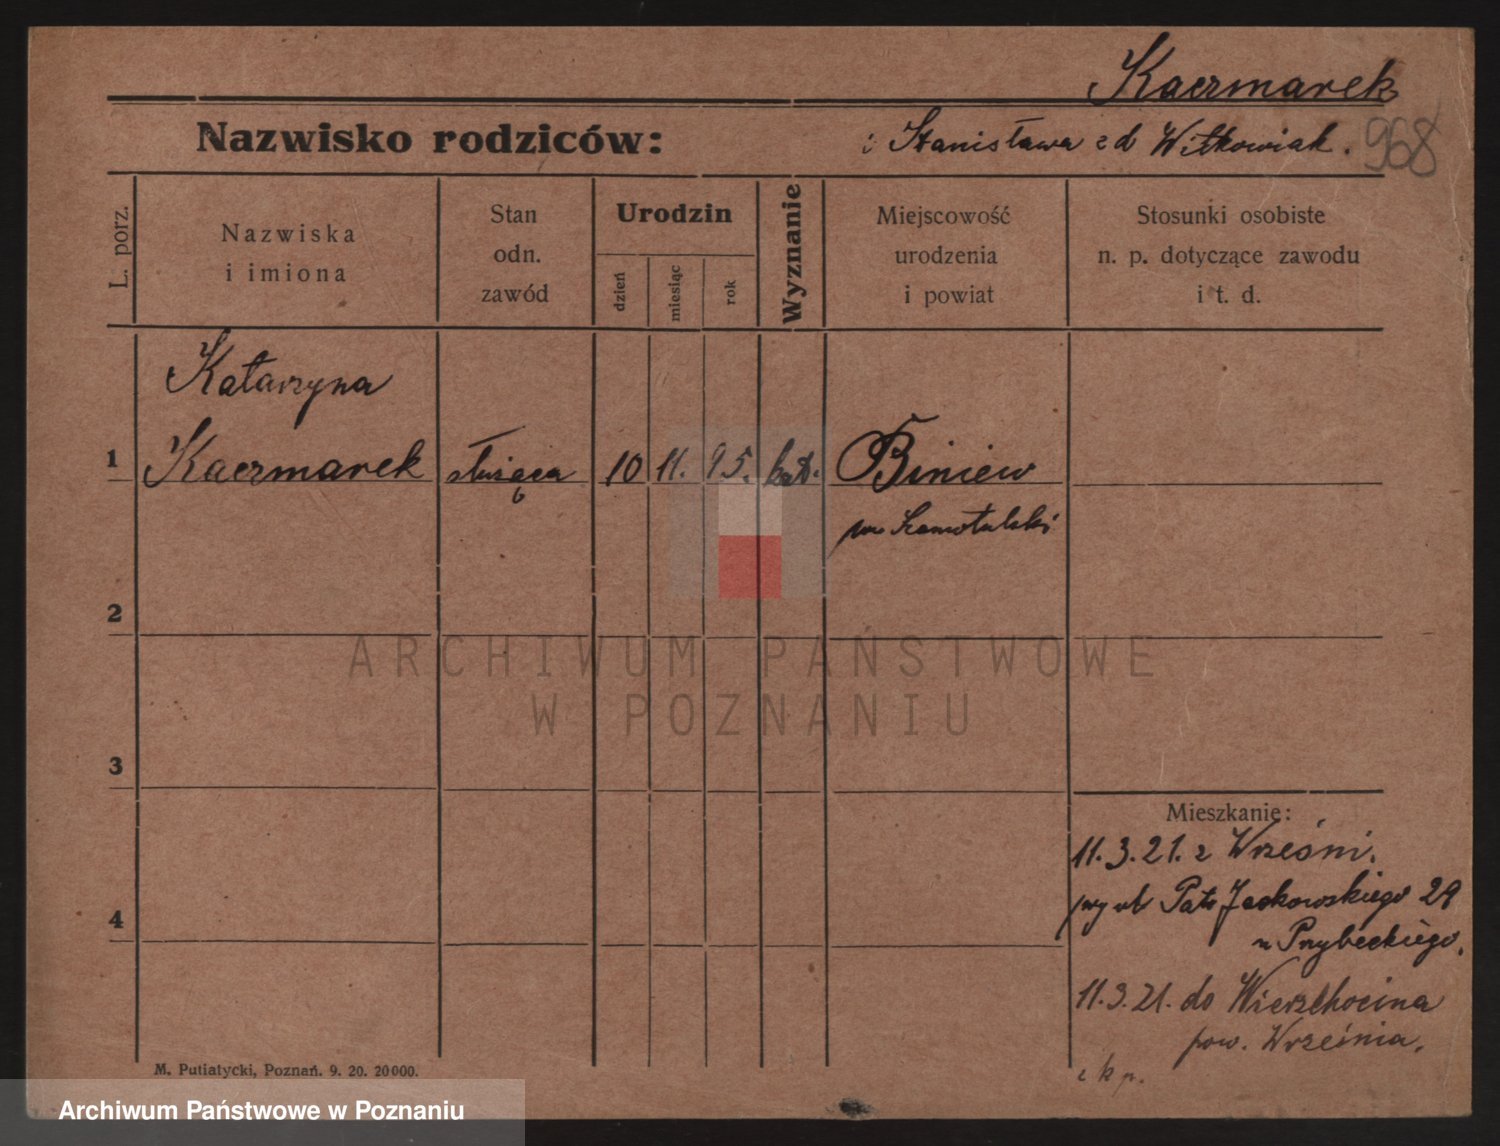 Kaczmarek
Nazwisko rodziców: i Stanisława z d Witkowiak. 968
L. porz.
Nazwiska
i imiona
Stan
odn.
zawód
Urodzin
dzień
miesiąc
rok
Wyznanie
Miejscowość
urodzenia
i powiat
Stosunki osobiste
n. p. dotyczące zawodu
i t. d.
Katarzyna
1 Kaczmarek służąca 10 11. 95. kat. Biniew
pow Szamotulski
2
3
4
Mieszkanie:
11.3.21. z Wrześni.
Patr Jackowskiego 29
u Przybeckiego.
11.3.21. do Wierzchocina
pow. Września.
M. Putiatycki, Poznań. 9. 20. 20000.
ARCHIWUM PAŃSTWOWE
W POZNANIU
Archiwum Państwowe w Poznaniu